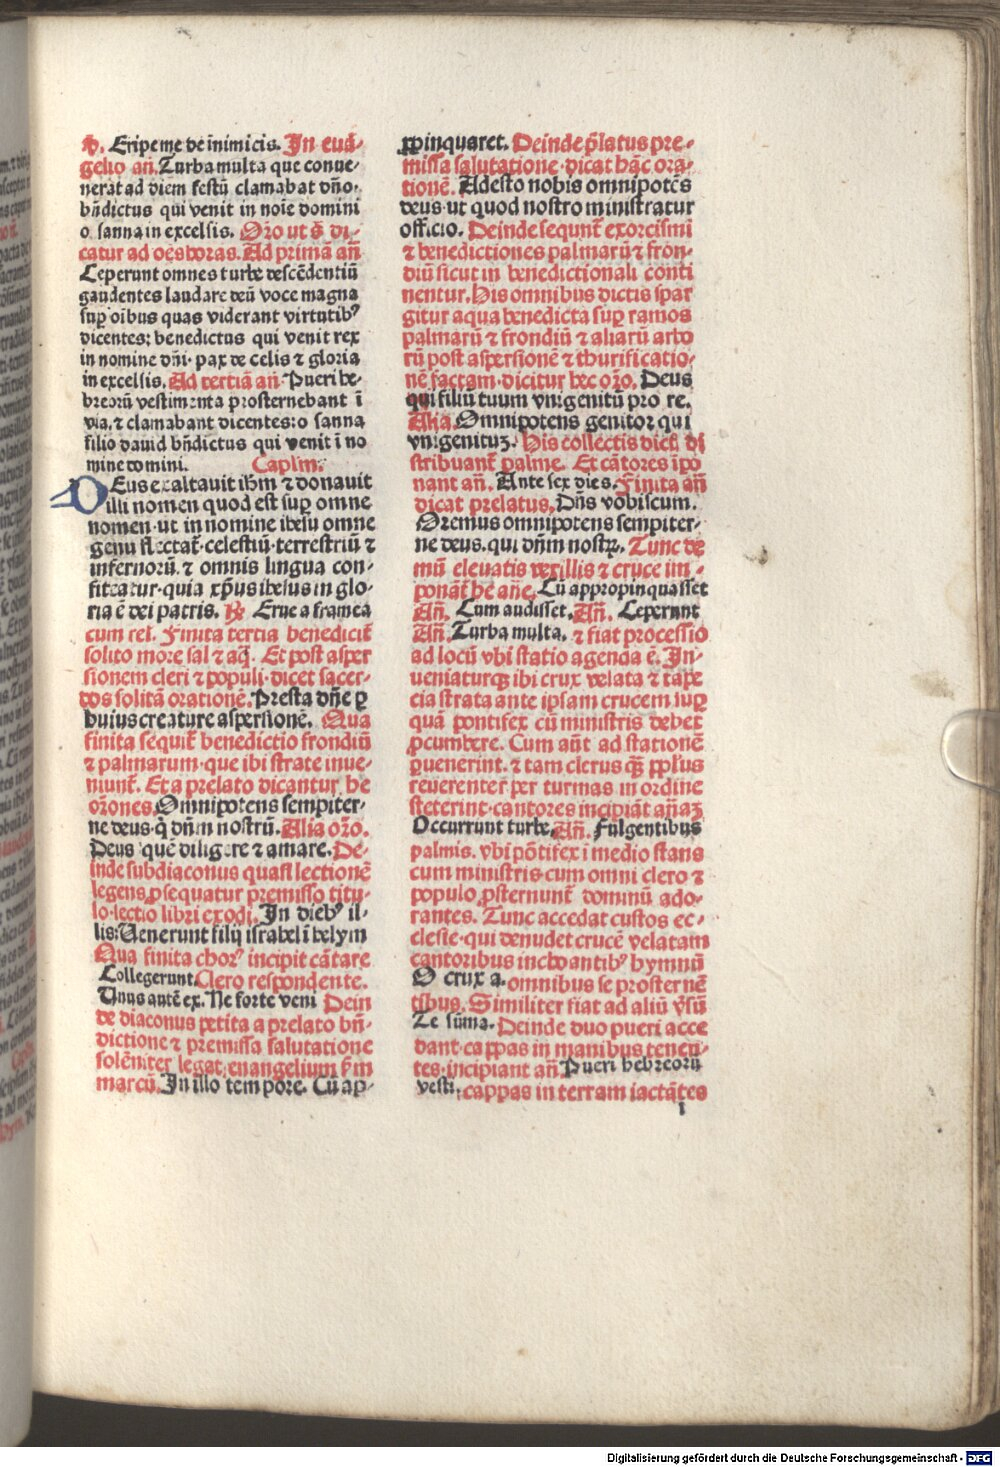 ℣. Eripe me de inimicis. In euā-
gelio añ. Turba multa que conue-
nerat ad diem festū clamabat dño·
bñdictus qui venit in noīe domini
o sanna in excelsis. Oro ut s̄ di-
catur ad oēs horas. Ad primā añ
Ceperunt omnes turbe descēdentiū
gaudentes laudare deū voce magna
suꝑ oībus quas viderant virtutibꝰ
dicentes: benedictus qui venit rex
in nomine dñi· pax de celis ⁊ gloria
in excelsis. Ad tertiā añ· Pueri he-
breorū vestimenta prosternebant ī
via. ⁊ clamabant dicentes: o sanna
filio dauid bñdictus qui venit ī no
mine domini. Caplm.
DEus exaltauit ihm ⁊ donauit
illi nomen quod est suꝑ omne
nomen· ut in nomine ihesu omne
genu flectat̄· celestiū· terrestriū ⁊
infernorū· ⁊ omnis lingua con-
fiteatur· quia xp̄us ihesus in glo-
ria ē dei patris. ℟ Erue a framea
cum rel. Finita tertia benedicit̄
solito more sal ⁊ aq̄. Et post asper
sionem cleri ⁊ populi· dicet sacer-
dos solitā orationē. Presta dñe ꝑ
huius creature aspersionē. Qua
finita sequit̄ benedictio frondiū
⁊ palmarum· que ibi strate inue-
niunt̄. Et a prelato dicantur he
orōnes. Omnipotens sempiter-
ne deus· q̄ dñm nostrū. Alia orō.
Deus quē diligere ⁊ amare. De-
inde subdiaconus quasi lectionē
legens ꝓsequatur premisso titu-
lo· lectio libri exodi. In diebꝰ il-
lis: Uenerunt filij israhel ī helym
Qua finita chorꝰ incipit cātare
Collegerunt Clero respondente.
Unus autē ex. Ne forte veni Dein
de diaconus petita a prelato bñ-
dictione ⁊ premissa salutatione
solēniter legat euangelium f̄m
marcū. In illo tempore. Cū ap-
ꝓpinquaret. Deinde p̄latus pre-
missa salutatione· dicat hāc ora-
tionē. Adesto nobis omnipotēs
deus· ut quod nostro ministratur
officio. Deinde sequnt̄ exorcismi
⁊ benedictiones palmarū ⁊ fron-
diū sicut in benedictionali conti
nentur. His omnibus dictis spar
gitur aqua benedicta suꝑ ramos
palmarū ⁊ frondiū ⁊ aliarū arbo
rū post aspersionē ⁊ thurificatio-
nē factam· dicitur hec orō. Deus
qui filiū tuum vnigenitū pro re.
Alia. Omnipotens genitor qui
vnigenituȝ. His collectis dieb di
stribuant̄ palme. Et cātores īpo
nant añ. Ante sex dies. Finita añ
dicat prelatus. Dñs vobiscum.
Oremus omnipotens sempiter-
ne deus. qui dñm nostꝝ. Tunc de
mū eleuatis vexillis ⁊ cruce im-
ponāt hē añe. Cū appropinquasset
Añ. Cum audisset. Añ. Ceperunt
Añ. Turba multa. ⁊ fiat processio
ad locū vbi statio agenda ē. In-
ueniaturqȝ ibi crux velata ⁊ tape
cia strata ante ipsam crucem suꝑ
quā pontifex cū ministris debet
ꝓcumbere. Cum aūt ad stationē
ꝑuenerint· ⁊ tam clerus qȝ̄ pplus
reuerenter ꝑer turmas in ordine
steterint· cantores incipiāt añaȝ
Occurrunt turbe. Añ. Fulgentibus
palmis. vbi pōtifex ī medio stans
cum ministris· cum omni clero ⁊
populo ꝓsternunt̄ dominū ado-
rantes. Tunc accedat custos ec-
clesie· qui denudet crucē velatam
cantoribus inchoantibꝰ hymnū
O crux a. omnibus se prosternē
tibus. Similiter fiat ad aliū v̄sū
Te sūma. Deinde duo pueri acce
dant cappas in manibus tenen-
tes· incipiant añ Pueri hebreorū
vesti. cappas in terram iactātes
i
Digitalisierung gefördert durch die Deutsche Forschungsgemeinschaft - DFG